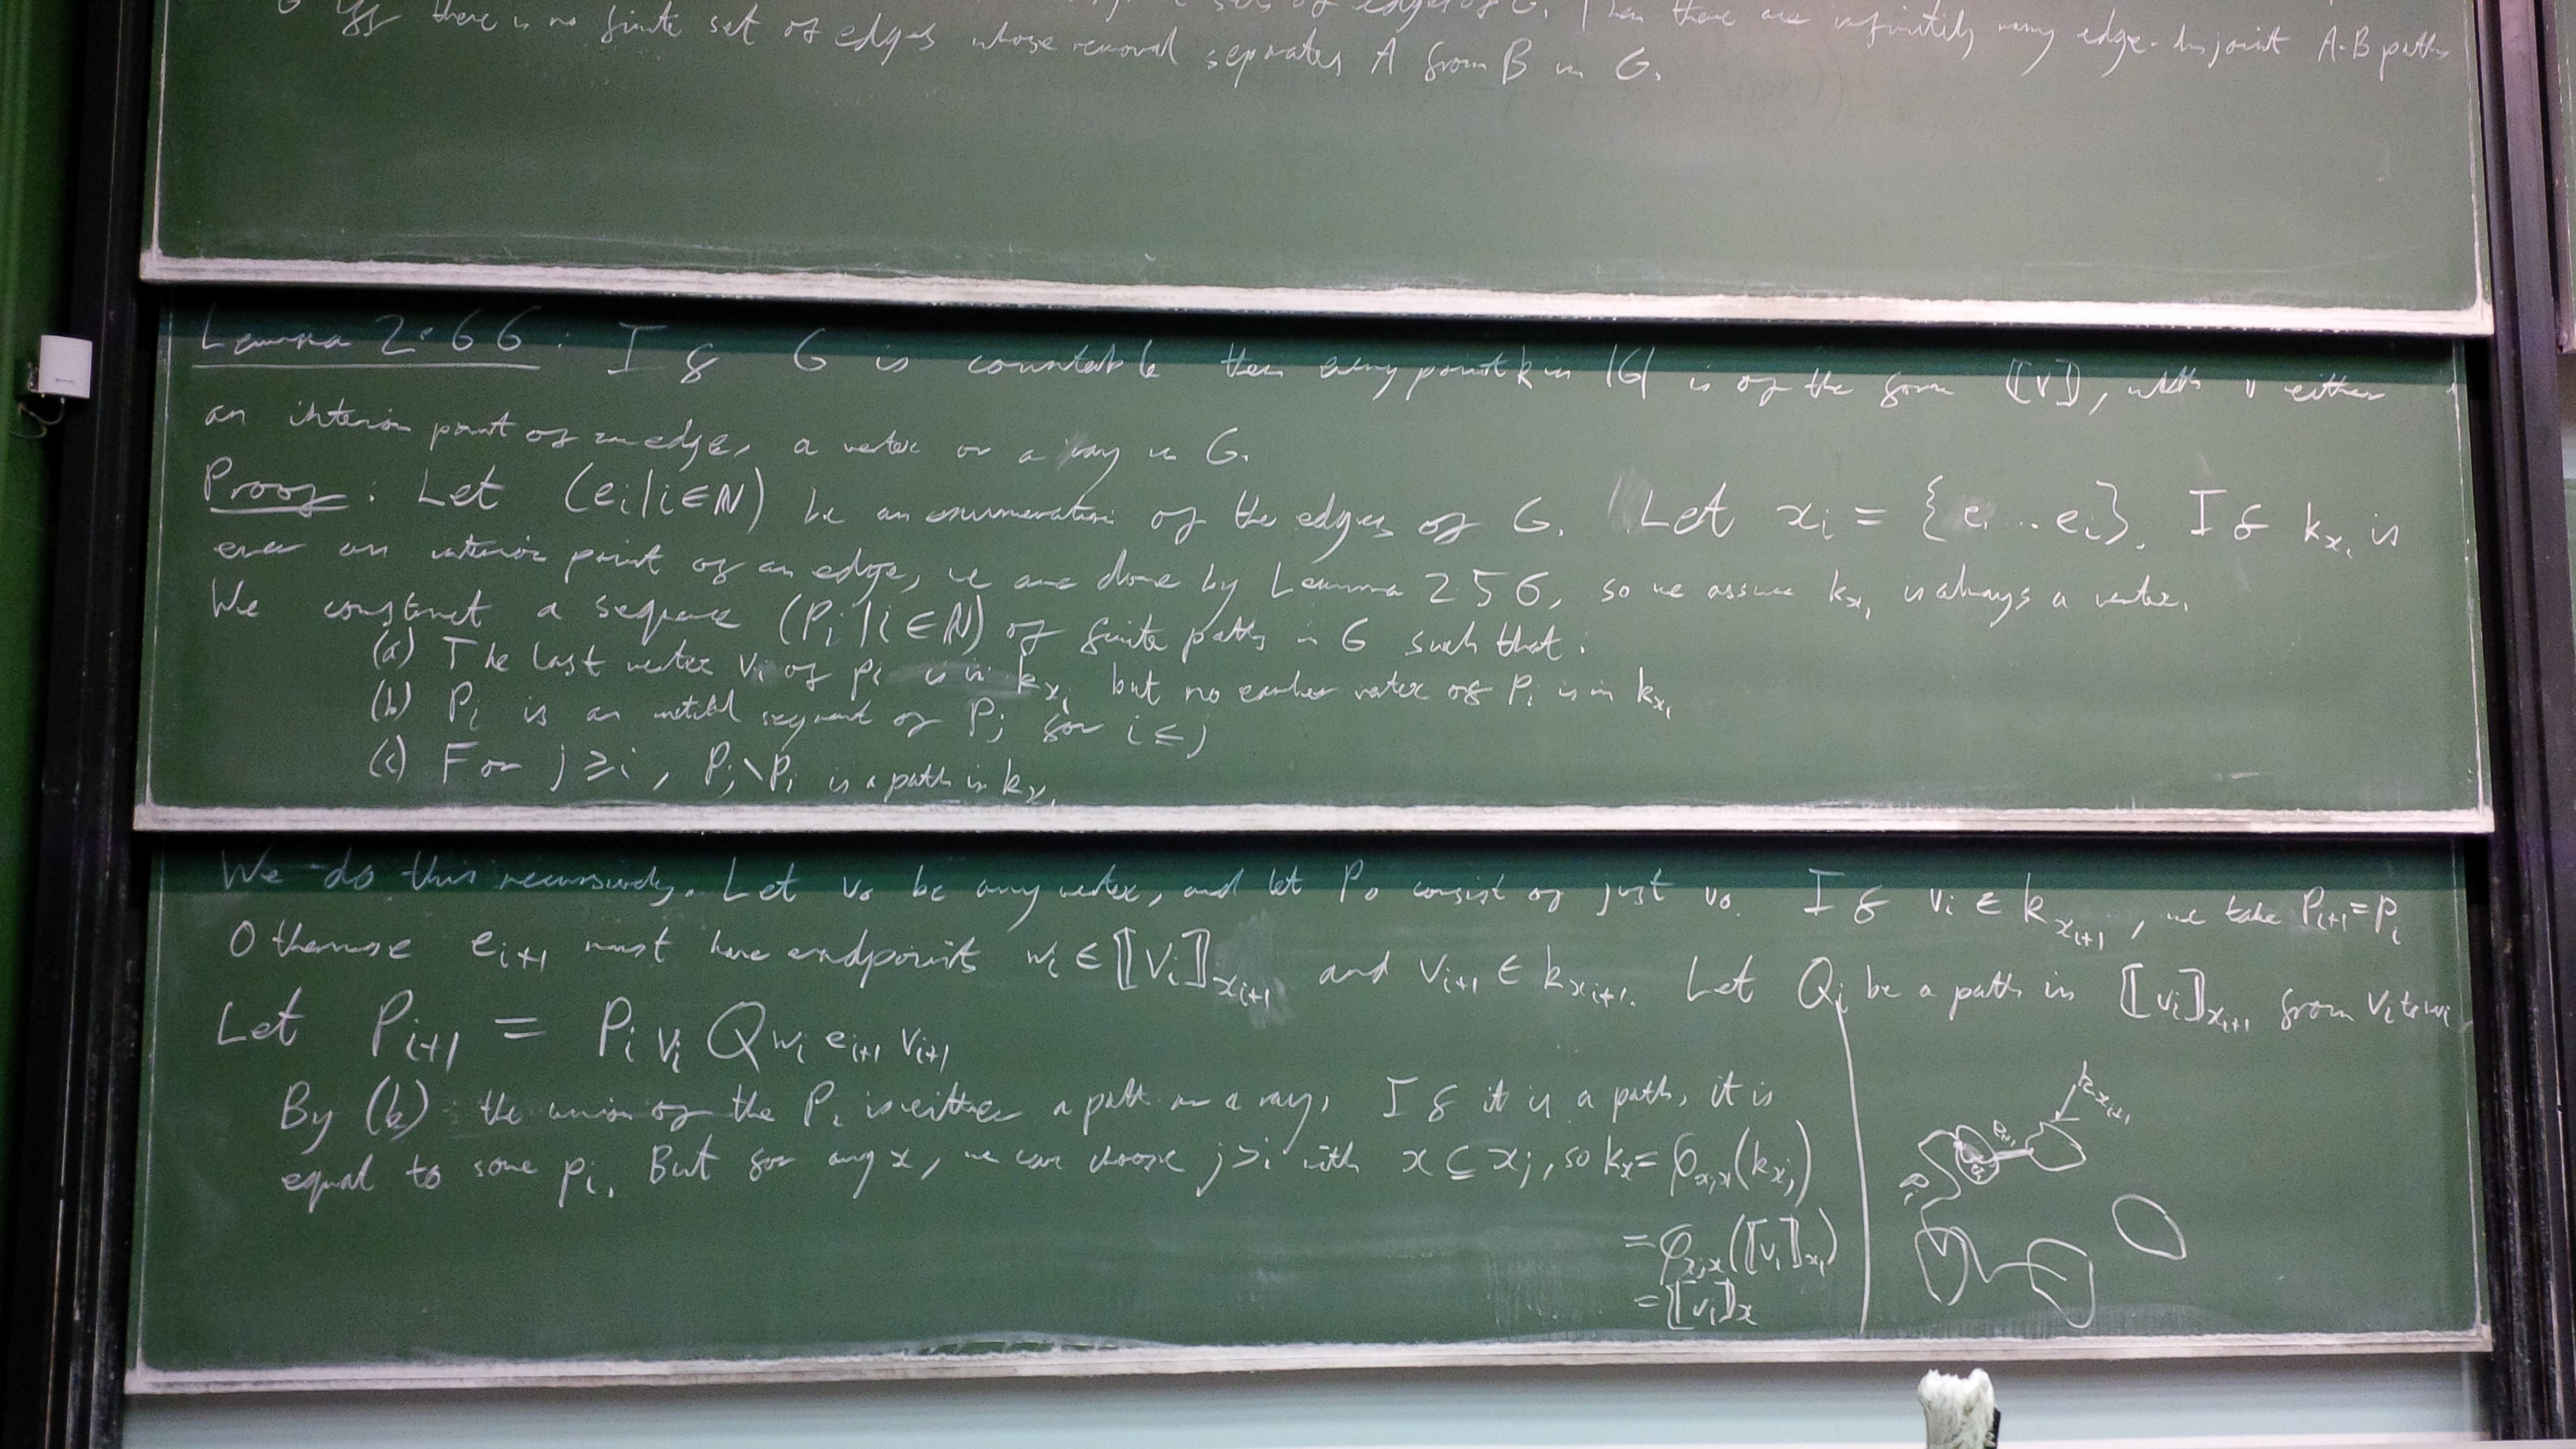 G iff there is no finite set of edges whose removal separates A from B in G. Then there are infinitely many edge-disjoint A-B paths
Lemma 2.66: If G is countable then every point k in |G| is of the form ⟦v⟧, with v either
an interior point of an edge, a vertex or a ray in G.
Proof: Let (e_i | i ∈ ℕ) be an enumeration of the edges of G. Let x_i = {e_1 ... e_i}. If k_{x_i} is
ever an interior point of an edge, we are done by Lemma 2.56, so we assume k_{x_i} is always a vertex.
We construct a sequence (P_i | i ∈ ℕ) of finite paths in G such that:
(a) The last vertex v_i of P_i is in k_{x_i} but no earlier vertex of P_i is in k_{x_i}
(b) P_i is an initial segment of P_j for i ≤ j
(c) For j ≥ i, P_j \ P_i is a path in k_{x_i}
We do this recursively. Let v_0 be any vertex, and let P_0 consist of just v_0. If v_i ∈ k_{x_{i+1}}, we take P_{i+1} = P_i
Otherwise e_{i+1} must have endpoints w_i ∈ ⟦v_i⟧_{x_{i+1}} and v_{i+1} ∈ k_{x_{i+1}}. Let Q_i be a path in ⟦v_i⟧_{x_{i+1}} from v_i to w_i
Let P_{i+1} = P_i v_i Q w_i e_{i+1} v_{i+1}
By (b) the union of the P_i is either a path or a ray. If it is a path, it is
equal to some P_i. But for any x, we can choose j > i with x ⊆ x_j, so k_x = φ_{x_j x}(k_{x_j})
= φ_{x_j x}(⟦v_i⟧_{x_j})
= ⟦v_i⟧_x
k_{x_{i+1}}
e_{i+1}
P_i